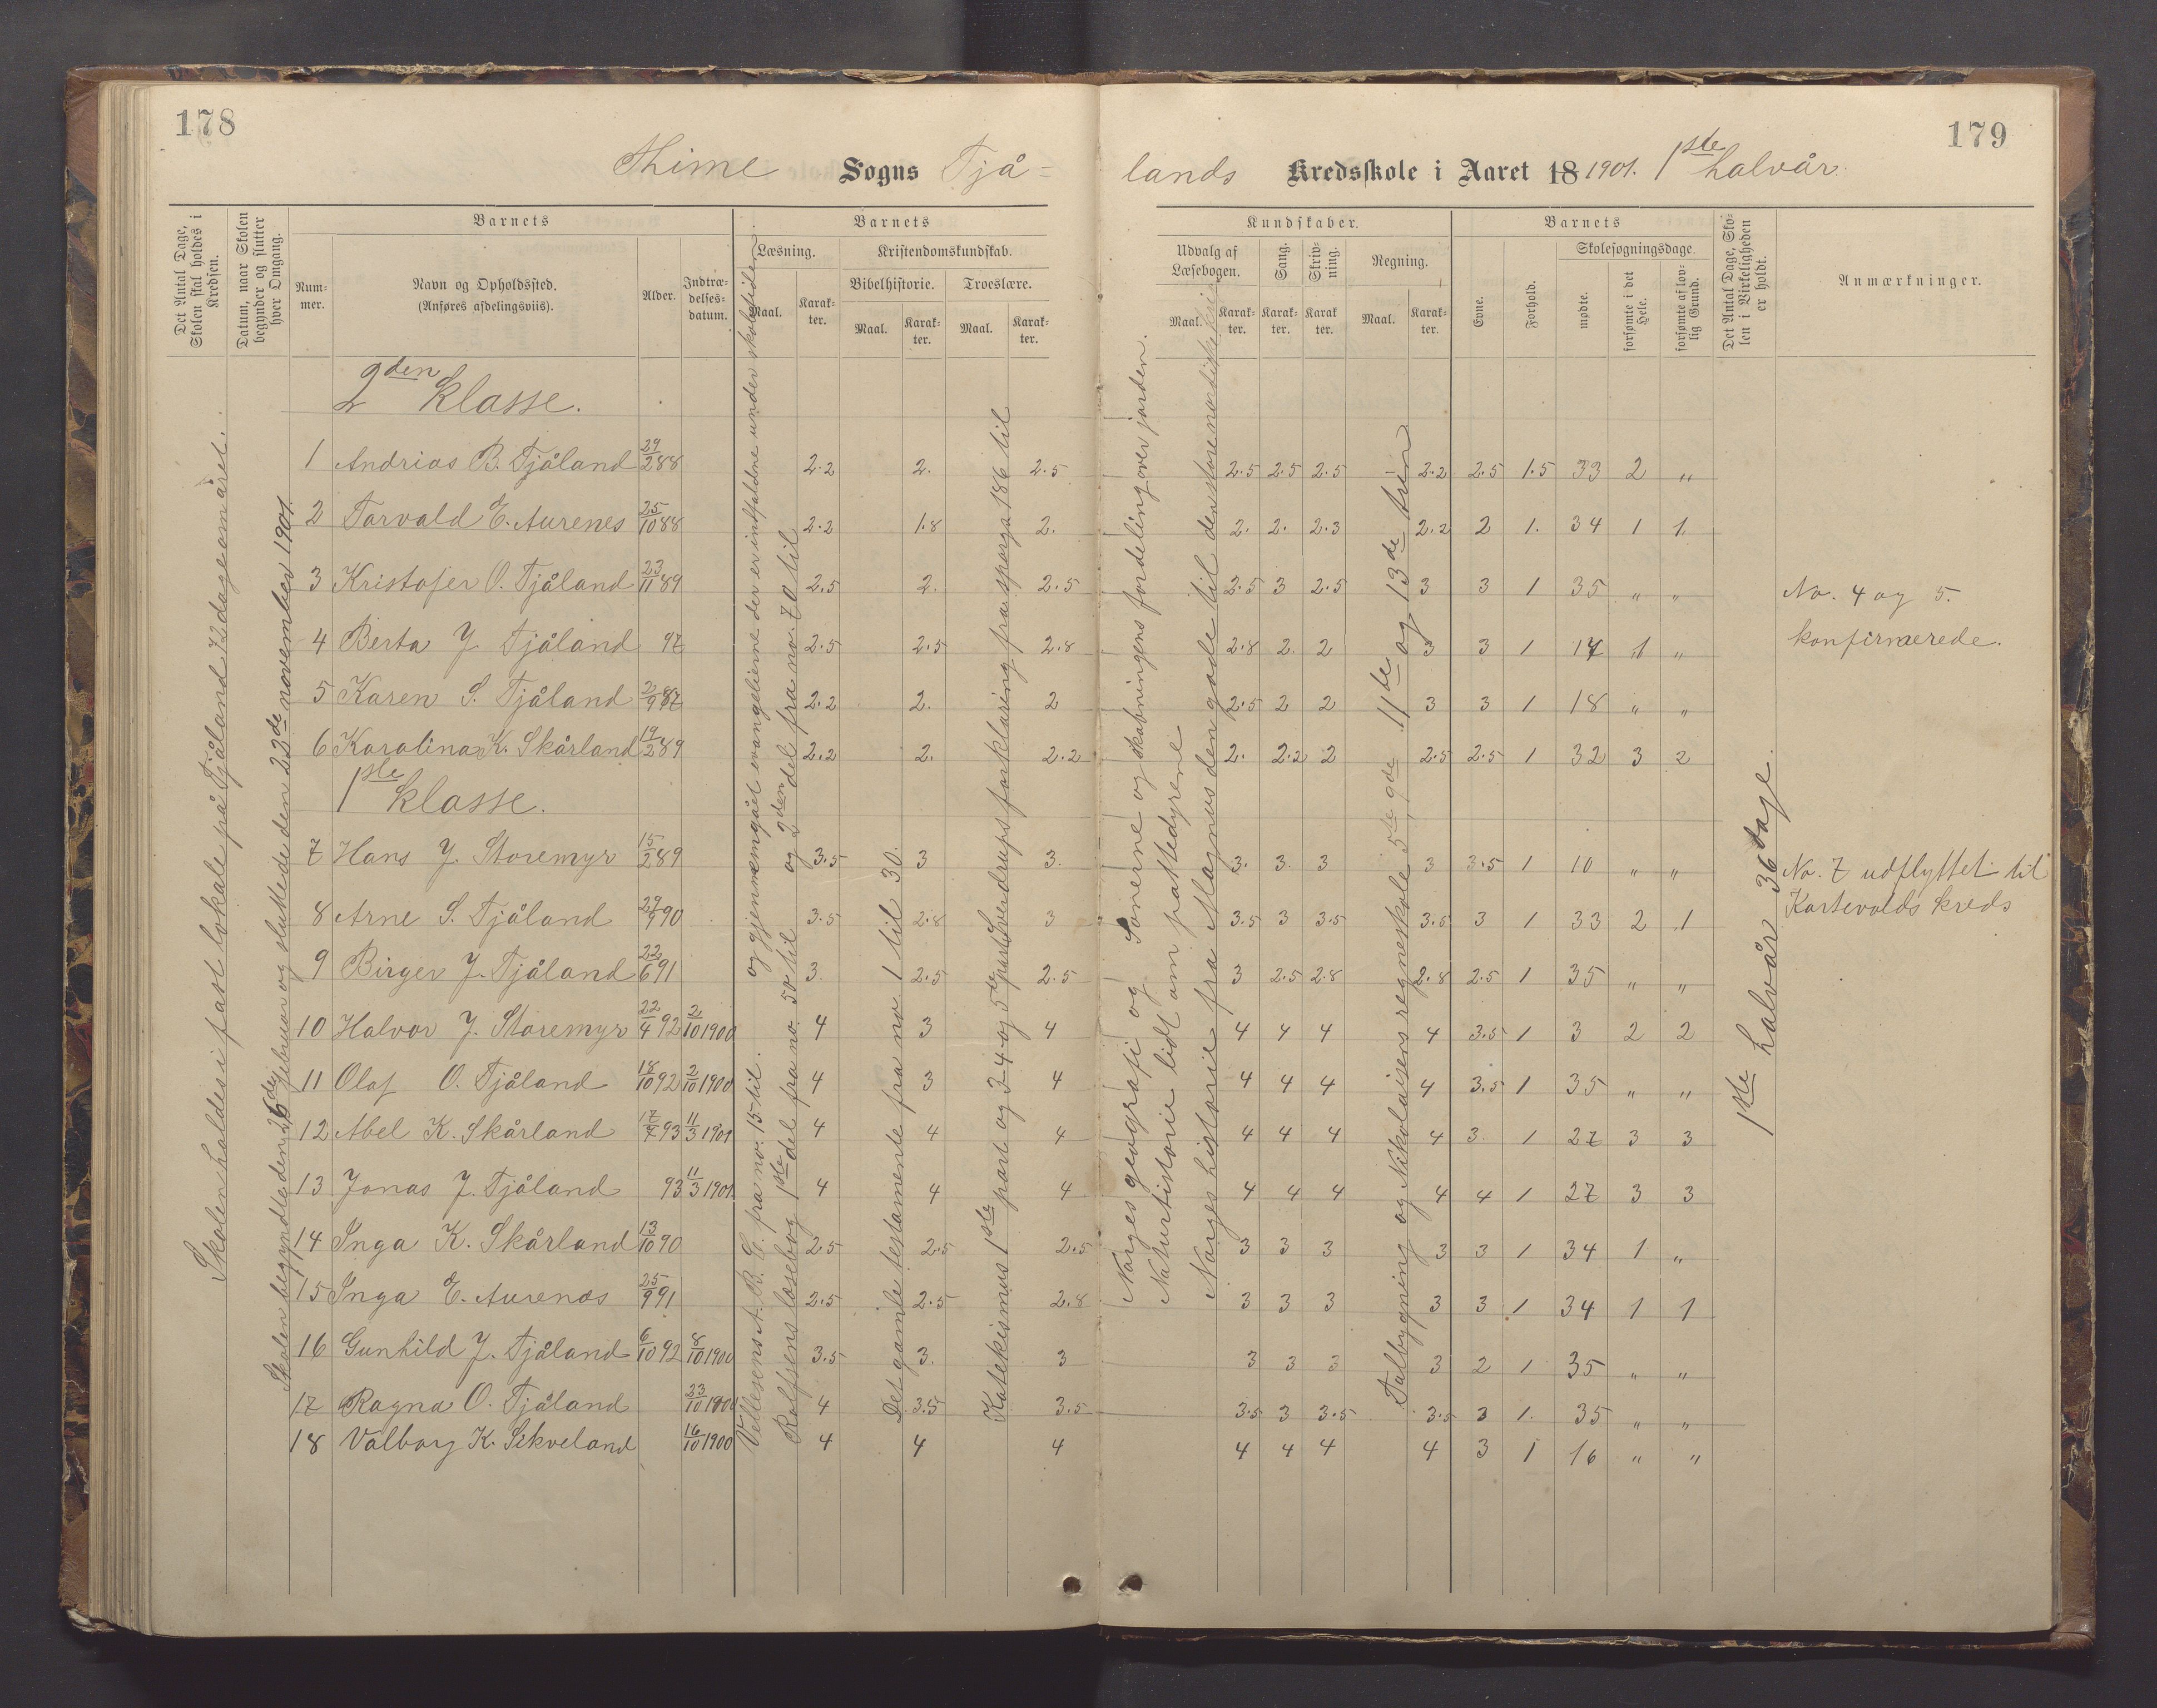 178
179
Thime Sogns Tjå= lands Kredsskole i Aaret 18 1901. 1ste halvår.
Det Antal Dage, Skolen skal holdes i Kredsen.
Datum, naar Skolen begynder og slutter hver Omgang.
Barnets
Nummer.
Navn og Opholdssted.
(Anføres afdelingsviis).
Alder.
Indtrædelsesdatum.
Barnets
Læsning.
Maal.
Karakter.
Kristendomskundskab.
Bibelhistorie.
Maal.
Karakter.
Troeslære.
Maal.
Karakter.
Kundskaber.
Udvalg af Læsebogen.
Maal.
Karakter.
Sang.
Karakter.
Skrivning.
Karakter.
Regning.
Maal.
Karakter.
Barnets
Evne.
Forhold.
Skolesøgningsdage.
mødte.
forsømte i det Hele.
forsømte af lovlig Grund.
Det Antal Dage, Skolen i Virkeligheden er holdt.
Anmærkninger.
2den klasse.
1 Andrias B. Tjåland 29/2 88 2.2 2. 2.5 2.5 2.5 2.5 2.2 2.5 1.5 33 2 "
2 Torvald E. Aurenes 25/10 88 2.2 1.8 2. 2. 2. 2.3 2.2 2 1. 34 1 1.
3 Kristofer O. Tjåland 23/11 89 2.5 2. 2.5 2.5 3 2.5 3 3 1 35 " "
4 Berta J. Tjåland 87 2.5 2.5 2.8 2.8 2. 2 3 3 1 17 1 "
5 Karen S. Tjåland 2/9 87 2.2 2. 2 2.5 2 2 3 3 1 18 " "
6 Karolina K. Skårland 19/2 89 2.2 2. 2.2 2. 2.2 2 2.5 2.5 1 32 3 2
No. 4 og 5.
konfirmerede.
1ste klasse.
7 Hans J. Storemyr 15/2 89 3.5 3 3. 3. 3. 3 3 3.5 1 10 " "
8 Arne S. Tjåland 29/9 90 3.5 2.8 3 3.5 3 3.5 3.5 3 1 33 2 1
9 Birger J. Tjåland 22/6 91 3. 2.5 2.5 3 2.5 2.8 2.8 2.5 1 35 " "
10 Halvor J. Storemyr 22/4 92 2/10 1900 4 3 4 4 4 4 4 3.5 1 3 2 2
11 Olaf O. Tjåland 18/10 92 2/10 1900 4 3 4 4 4 4 4 3.5 1 35 " "
12 Abel K. Skårland 17/7 93 11/3 1901 4 4 4 4 4 4 4 3. 1 27 3 3
13 Jonas J. Tjåland 93 11/3 1901 4 4 4 4 4 4 4 4 1 27 3 3
14 Inga K. Skårland 13/10 90 2.5 2.5 2.5 3 3 3 3 3 1 34 1 "
15 Inga E. Aurenes 25/9 91 2.5 2.5 2.8 3 3 3 3 3 1 34 1 1
16 Gunhild J. Tjåland 6/10 92 8/10 1900 3.5 3. 3 3 3 3 3 2 1 35 " "
17 Ragna O. Tjåland 23/10 1900 4 3.5 3.5 3.5 3 3.5 3.5 3 1. 35 " "
18 Valborg K. Sikveland 16/10 1900 4 4 4 4 4 4 4 3 1 16 " "
No. 7 udflyttet til
Kartevolds kreds
Skolen holdes i fast lokale på Tjåland 72 dage om året.
Skolen begyndte den 26de februar og sluttede den 22de november 1901.
Vellesens A. B. C. fra no. 15 til . og gjennemgået evangelierne der er indfaldne under skoletiden.
Rolfsens læsebog 1ste del fra no. 50 til og 2den del fra no. 70 til
Det gamle testamente fra no 1 til 30.
Katekismus 1ste part og 3-4 og 5te part Sverdrups forklaring fra sporga 186 til
Norges geografi og Sonerne og skabningens fordeling over jorden.
Naturhistorie lidt om pattedyrene
Norges historie fra Magnus den gode til den store nordiske krig
Talbygning og Nikolaisens regneskole 5te, 9de 11de og 13de trin
1ste halvår 36 dage.